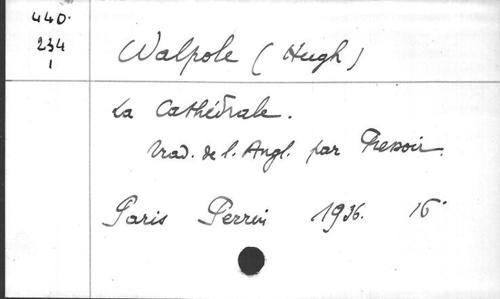 440.
234
1
Walpole (Hugh)
La Cathédrale.
Trad. de l. Angl. par
Paris Perrin 1936. 16°